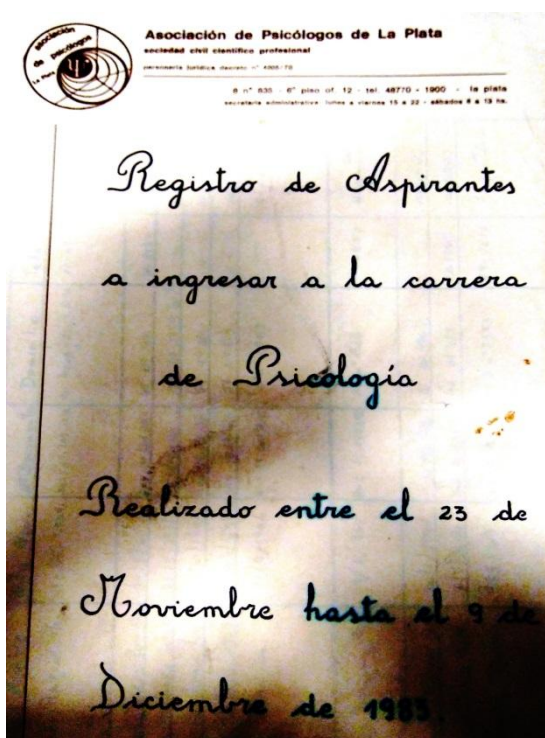 asociación de psicólogos La Plata
Asociación de Psicólogos de La Plata
sociedad civil científico profesional
personería jurídica decreto n° 4005/72
6 n° 835 - 6° piso of. 12 - tel. 48770 - 1900 - la plata
secretaría administrativa: lunes a viernes 15 a 22 - sábados 8 a 13 hs.
Registro de Aspirantes
a ingresar a la carrera
de Psicología
Realizado entre el 23 de
Noviembre hasta el 9 de
Diciembre de 1983.